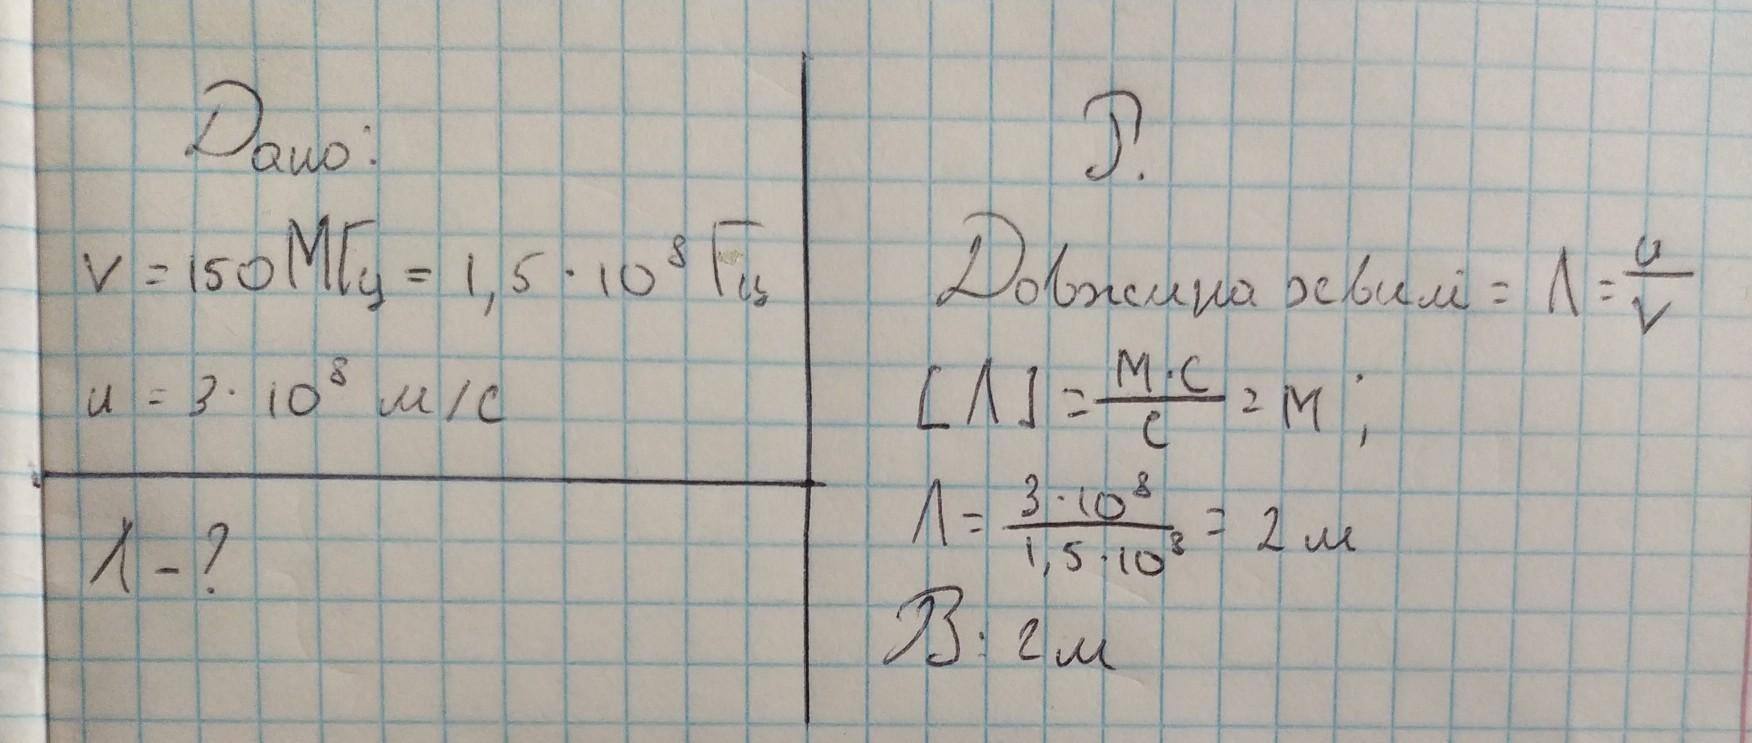 Дано:
ν = 150 МГц = 1,5 · 10⁸ Гц
u = 3 · 10⁸ м/с
λ - ?
Р.
Довжина хвилі = Λ = u/ν
[Λ] = м·с/с = м;
Λ = 3·10⁸/1,5·10⁸ = 2 м
В: 2 м